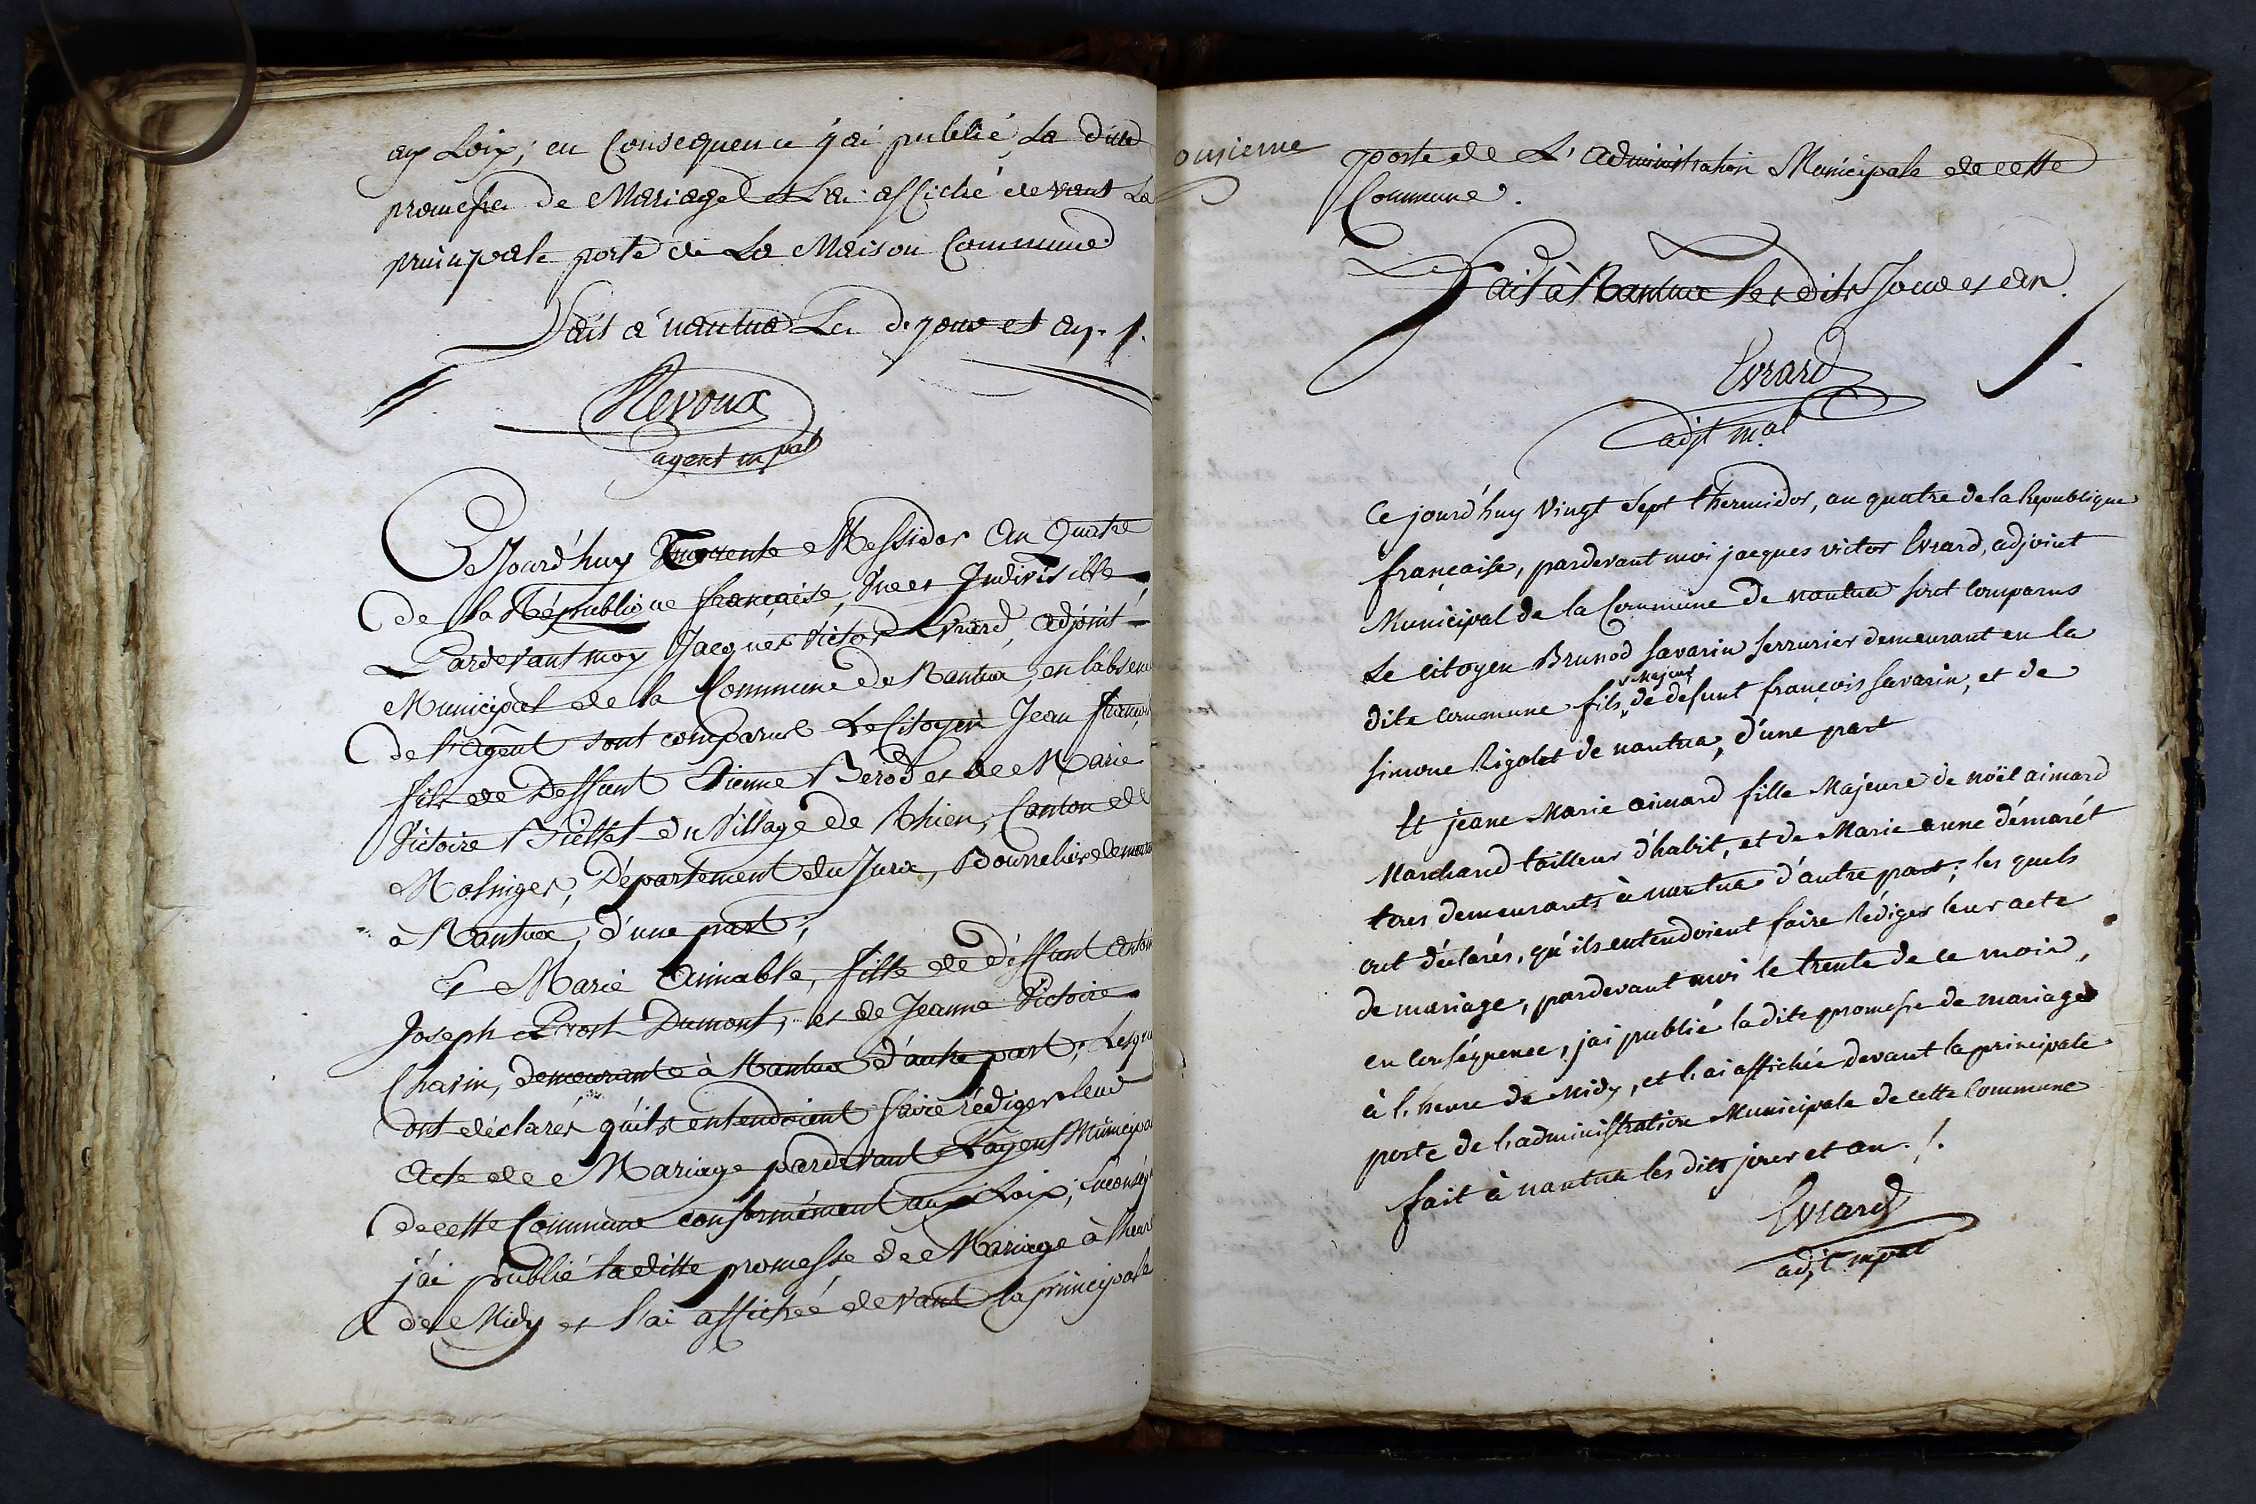 aux Loix; en Consequence j'ai publié La dite
promesse de Mariage et L'ai affiché devant La
principale porte de La Maison Commune
Fait a nantua Les d. jour et an.
Revoux
agent mpal
Ce Jourd'huy trente Messidor an quatre
de la République française, Une et Indivisible
Pardevant moy Jacques Victor Evrard, adjoint
Municipal de la Commune de Nantua, en l'absence
de l'Agent sont comparus Le Citoyen Jean françois
fils de Deffunt Etienne Berod et de Marie
Victoire du Village de Rhien, Canton de
Molinges, Département du Jura, Bourrelier demeurant
à Nantua, d'une part;
Et Marie Aimable, fille de Deffunt
Joseph Prost Dumont, et de Jeanne Victoire
Chavin, demeurante à Nantua d'autre part; Lesquels
ont déclarés qu'ils entendoient faire rédiger leur
Acte de Mariage pardevant L'agent Municipal
de cette Commune conformément aux Loix; En conséq
j'ai publié la ditte promesse de Mariage à l'heure
de Midy et l'ai affichée devant la principale
onzieme
porte de L'administration Municipale de cette
Commune.
Fait à Nantua les dits Jour et an.
Evrard
adjt mal
Ce jourd'huy vingt sept thermidor, an quatre de la Republique
française, pardevant moi jacques victor Evrard, adjoint
Municipal de la Commune de nantua sont comparus
Le citoyen Brunod savarin serrurier demeurant en la
majeur
dite commune fils de defunt françois savarin, et de
simone Rigolet de nantua, d'une part
Et jeane Marie aimard fille Majeure de noël aimard
Marchand tailleur d'habit, et de Marie anne démarét
tous demeurants à nantua d'autre part; les quels
ont déclarés, qu'ils entendoient faire rédiger leur acte
de mariage, pardevant moi le trente de ce mois,
en conséquence, j'ai publié la dite promesse de mariage
à l'heure de Midy, et l'ai affichée devant la principale
porte de l'administration Municipale de cette Commune
fait à nantua les dits jour et an.
Evrard
adjt mpal